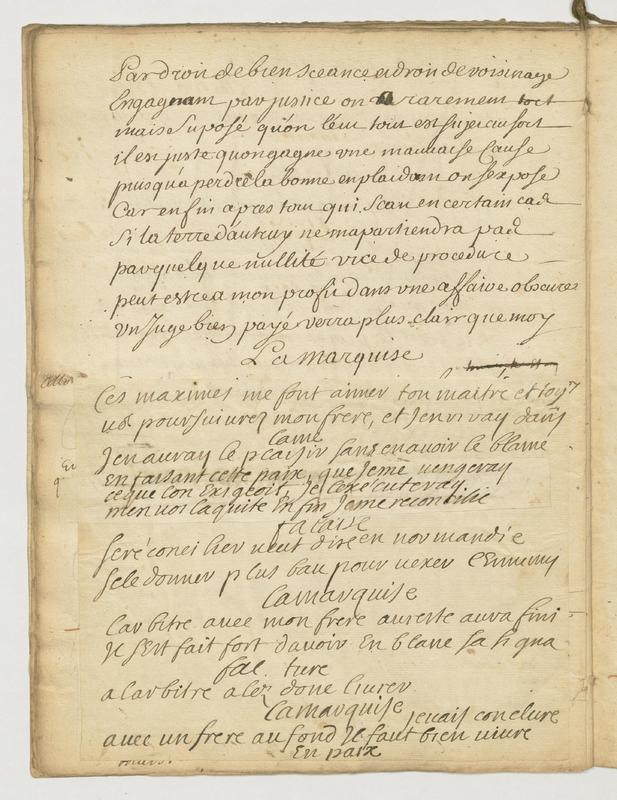 Par droit de bien sceance et droit de voisinage
Engagnant par justice on a rarement tort
mais suposé qu'on l'eut tout est sujet au sort
il est juste quon gagne une mauvaise Cause
puisqu'a perdre la bonne en plaidant on s'expose
Car enfin apres tout qui scait en certain cas
Si la terre d'autruy ne m'apartiendra pas
par quelque nullité vice de procedure
peut estre a mon profit dans une affaire obscure
un Juge bien payé verra plus clair que moy
La marquise
Ces maximes me font aimer ton maitre et toy
vos poursuivrez mon frere, et J'en riray dans
lame
J'en auray le plaisir sans en avoir le blame
en faisant cette paix, que Je me vengeray
ce que l'on Exigeoit, Je l'executeray
men vos la quite Enfin Je me reconcilie
falaise
se réconcilier veut dire en normandie
se le donner plus beau pour vexer l'Ennemy
Lamarquise
Larbitre avec mon frere au reste aura fini
Il s'Est fait fort davoir En blanc sa signa
fal. ture
a larbitre alez donc livrer
Lamarquise
je vais conclure
avec un frere au fond Il faut bien vivre
En paix